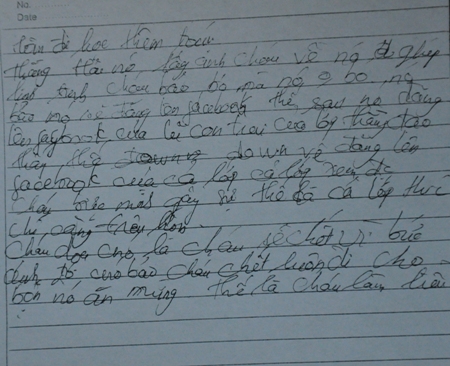 No.
Date
Hôm đi học thêm toán
thằng Hải nó lấy ảnh cháu về nó đi ghép
linh tinh cháu bảo bỏ mà nó o bỏ nó
bảo nó sẽ đăng lên facebook thế sau nó đăng
lên facebook của lũ con trai của lớp thằng tạo
thân thế down về đăng lên
facebook của cả lớp cả lớp xem đc
bực mình gây sự thế là cả lớp
chị càng trêu hơn.
Cháu dọa cho là cháu sẽ chết vì bức
ảnh đó cno bảo cháu chết luôn đi cho
bọn nó ăn mừng thế là cháu làm liều